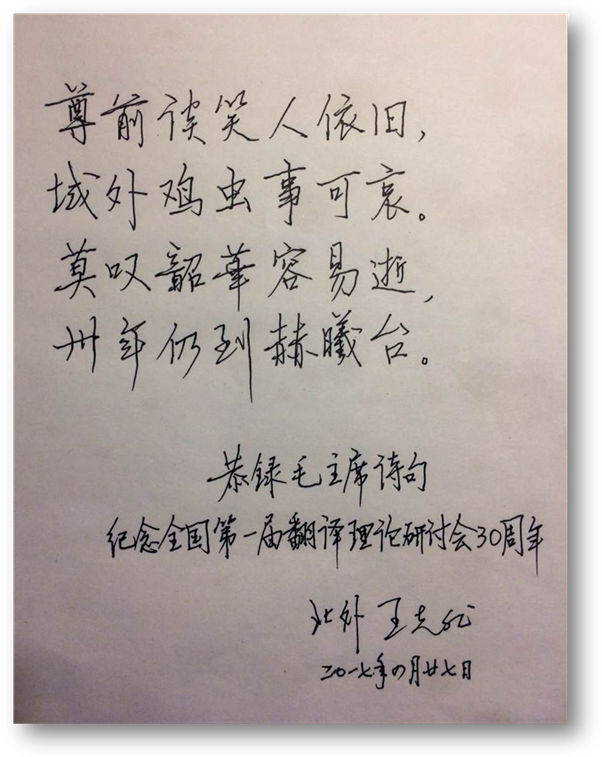 尊前谈笑人依旧，
域外鸡虫事可哀。
莫叹韶华容易逝，
卅年仍到赫曦台。
恭录毛主席诗句
纪念全国第一届翻译理论研讨会30周年
北外 王克非
二〇一七年四月廿七日